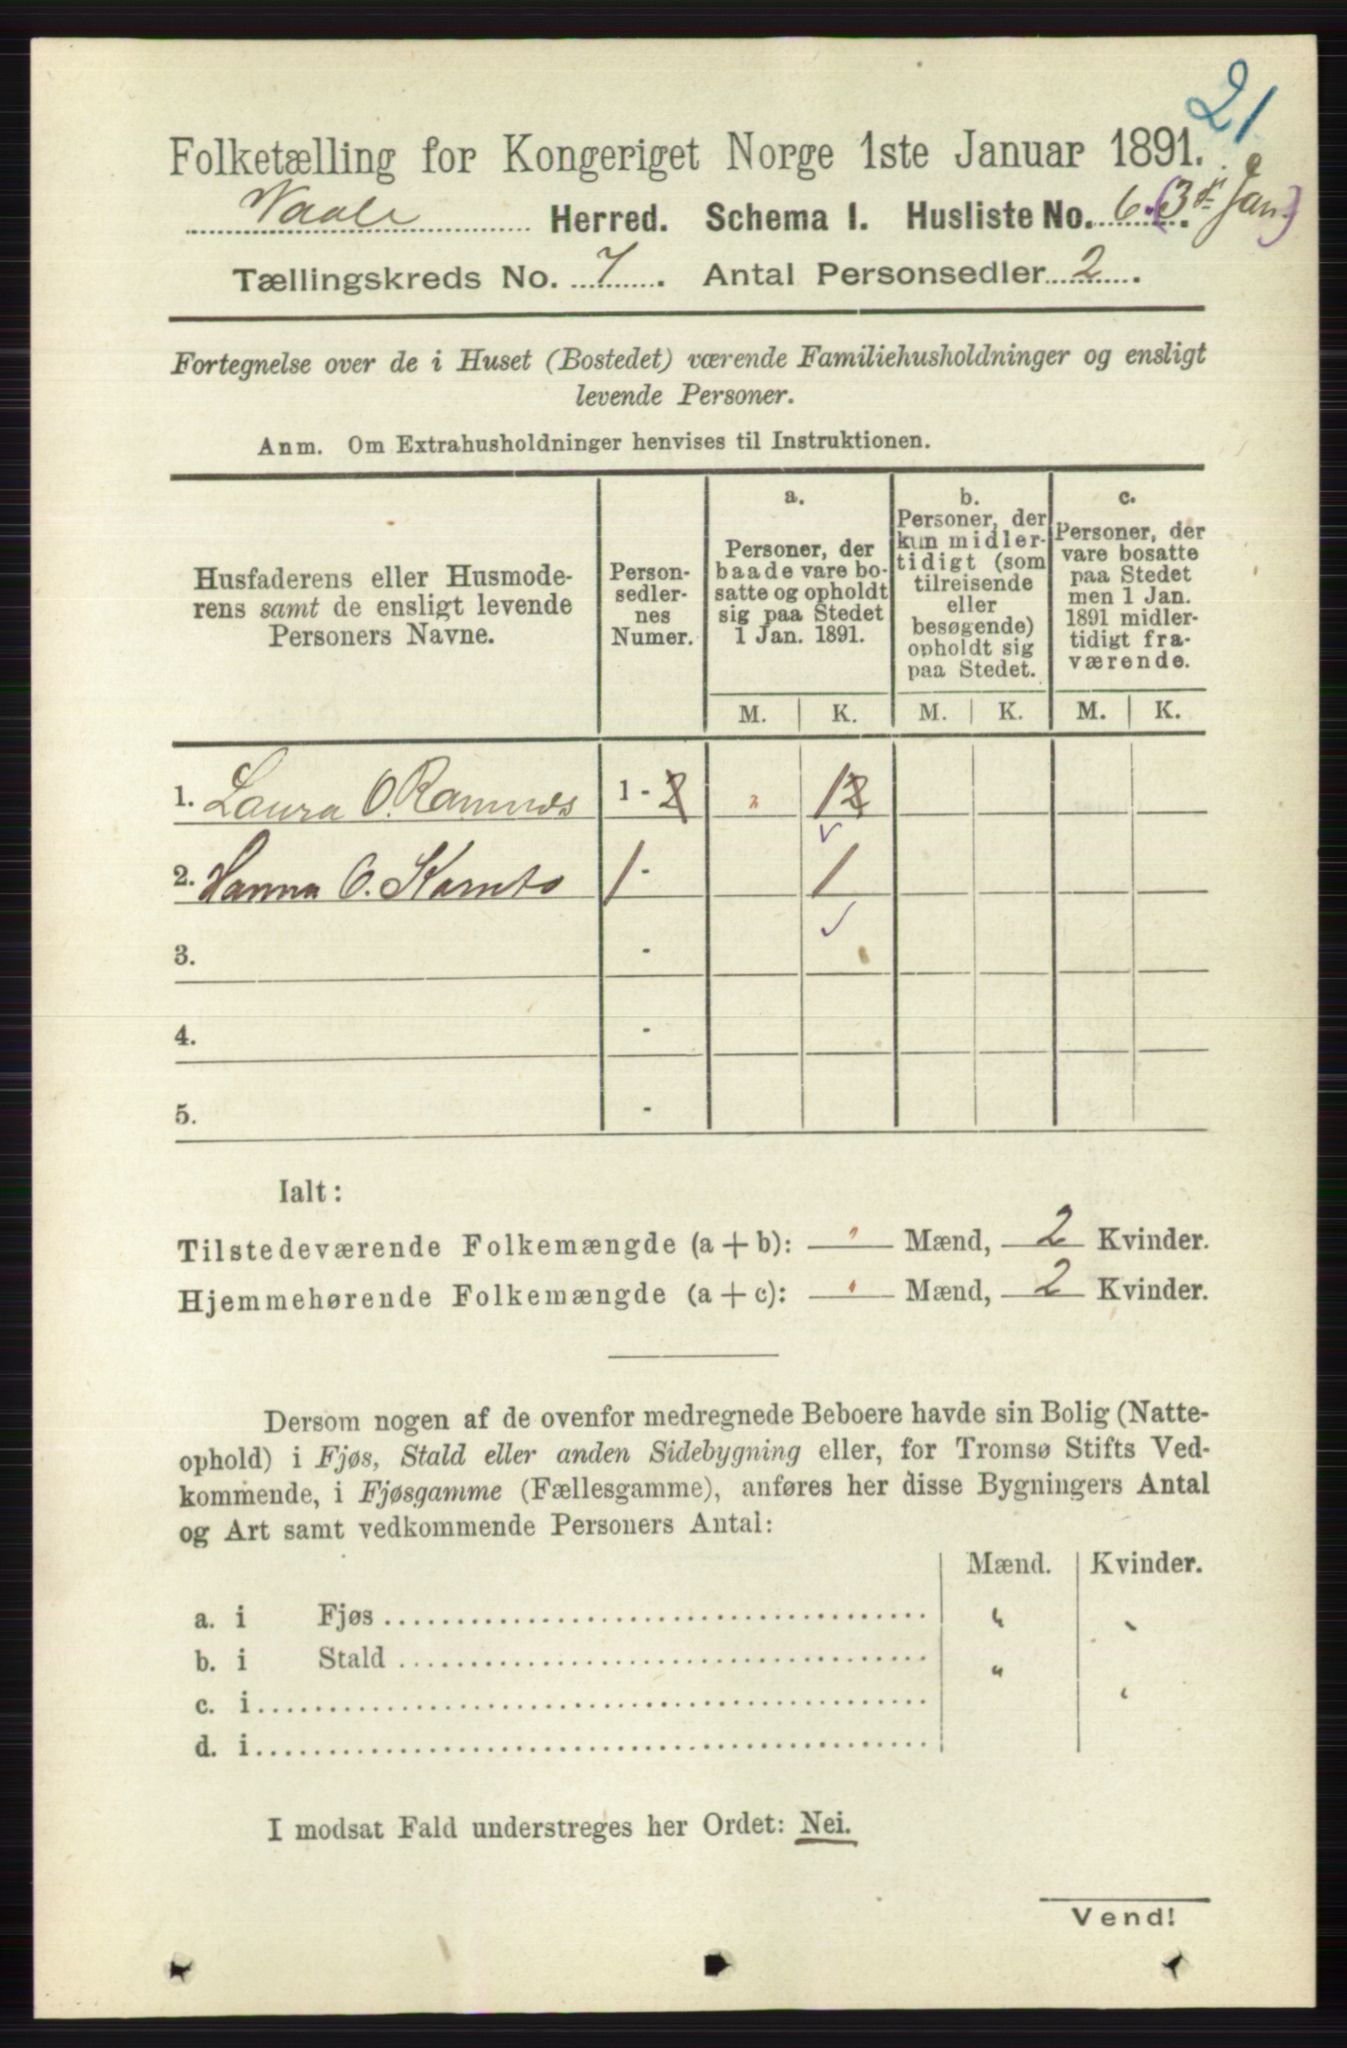 21
Folketælling for Kongeriget Norge 1ste Januar 1891.
Vaale Herred. Schema I. Husliste No. 6. (3die Jan.)
Tællingskreds No. 7. Antal Personsedler 2.
Fortegnelse over de i Huset (Bostedet) værende Familiehusholdninger og ensligt
levende Personer.
Anm. Om Extrahusholdninger henvises til Instruktionen.
Husfaderens eller Husmode-
rens samt de ensligt levende
Personers Navne.
Person-
sedler-
nes
Numer.
a.
Personer, der
baade vare bo-
satte og opholdt
sig paa Stedet
1 Jan. 1891.
b.
Personer, der
kun midler-
tidigt (som
tilreisende
eller
besøgende)
opholdt sig
paa Stedet.
c.
Personer, der
vare bosatte
paa Stedet
men 1 Jan.
1891 midler-
tidigt fra-
værende.
M. K. M. K. M. K.
1. Laura O. Ramnes 1 - 2 12
2. Hanna O. 1 - 1
3. -
4. -
5. -
Ialt:
Tilstedeværende Folkemængde (a + b): Mænd, 2 Kvinder.
Hjemmehørende Folkemængde (a + c): Mænd, 2 Kvinder.
Dersom nogen af de ovenfor medregnede Beboere havde sin Bolig (Natte-
ophold) i Fjøs, Stald eller anden Sidebygning eller, for Tromsø Stifts Ved-
kommende, i Fjøsgamme (Fællesgamme), anføres her disse Bygningers Antal
og Art samt vedkommende Personers Antal:
Mænd. Kvinder.
a. i Fjøs "
b. i Stald "
c. i
d. i
I modsat Fald understreges her Ordet: Nei.
Vend!